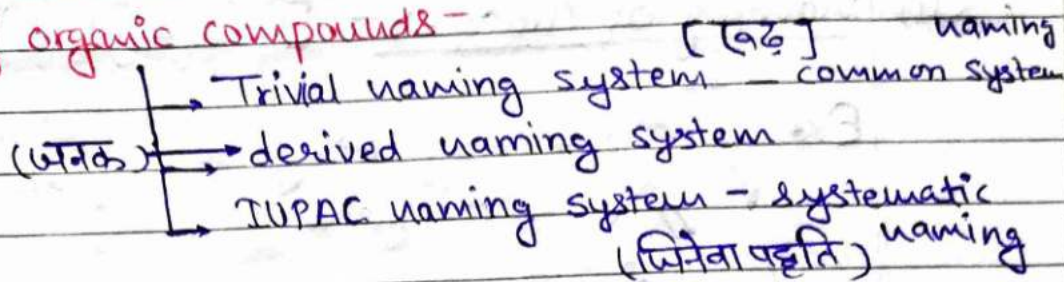 organic compounds -
[रूढ़] naming
→ Trivial naming system - common system
(जनक) → derived naming system
→ IUPAC naming system - systematic
(जिनेवा पद्धति) naming